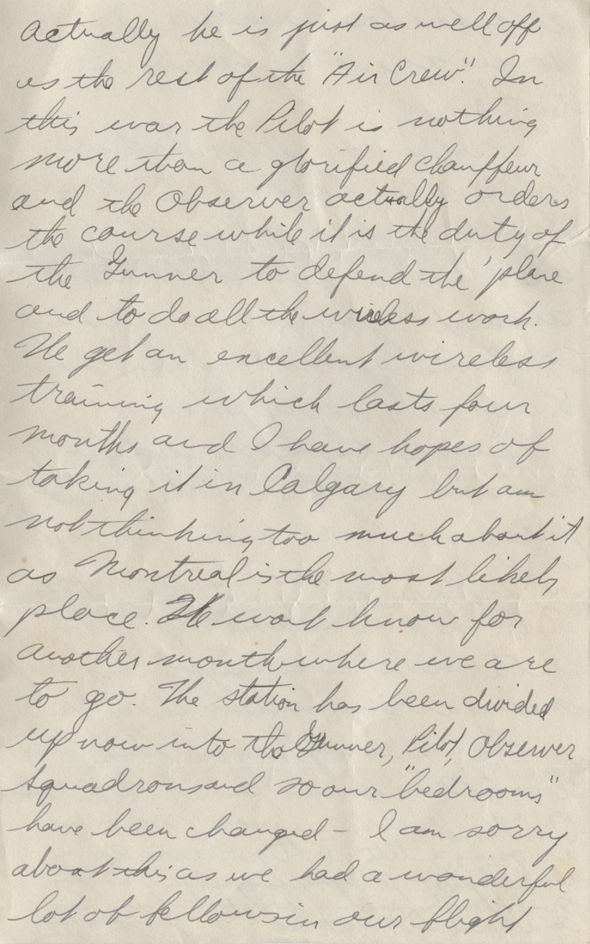 Actually he is just as well off
as the rest of the "Air Crew". In
this war the Pilot is nothing
more than a glorified chauffeur
and the Observer actually orders
the course while it is the duty of
the Gunner to defend the 'plane
and to do all the wireless work.
We get an excellent wireless
training which lasts four
months and I have hopes of
taking it in Calgary but am
not thinking too much about it
as Montreal is the most likely
place. We wont know for
another month where we are
to go. The station has been divided
up now into the Gunner, Pilot, Observer
Squadrons and so our "bedrooms"
have been changed - I am sorry
about this as we had a wonderful
lot of fellows in our flight